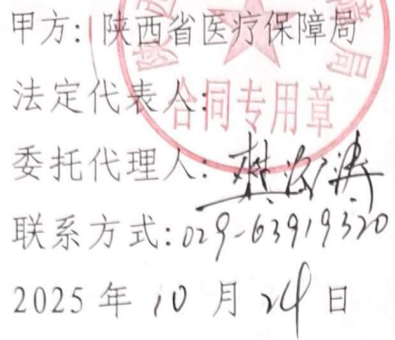 甲方：陕西省医疗保障局
法定代表人：
合同专用章
委托代理人：樊
联系方式：029-63919320
2025 年 10 月 24 日